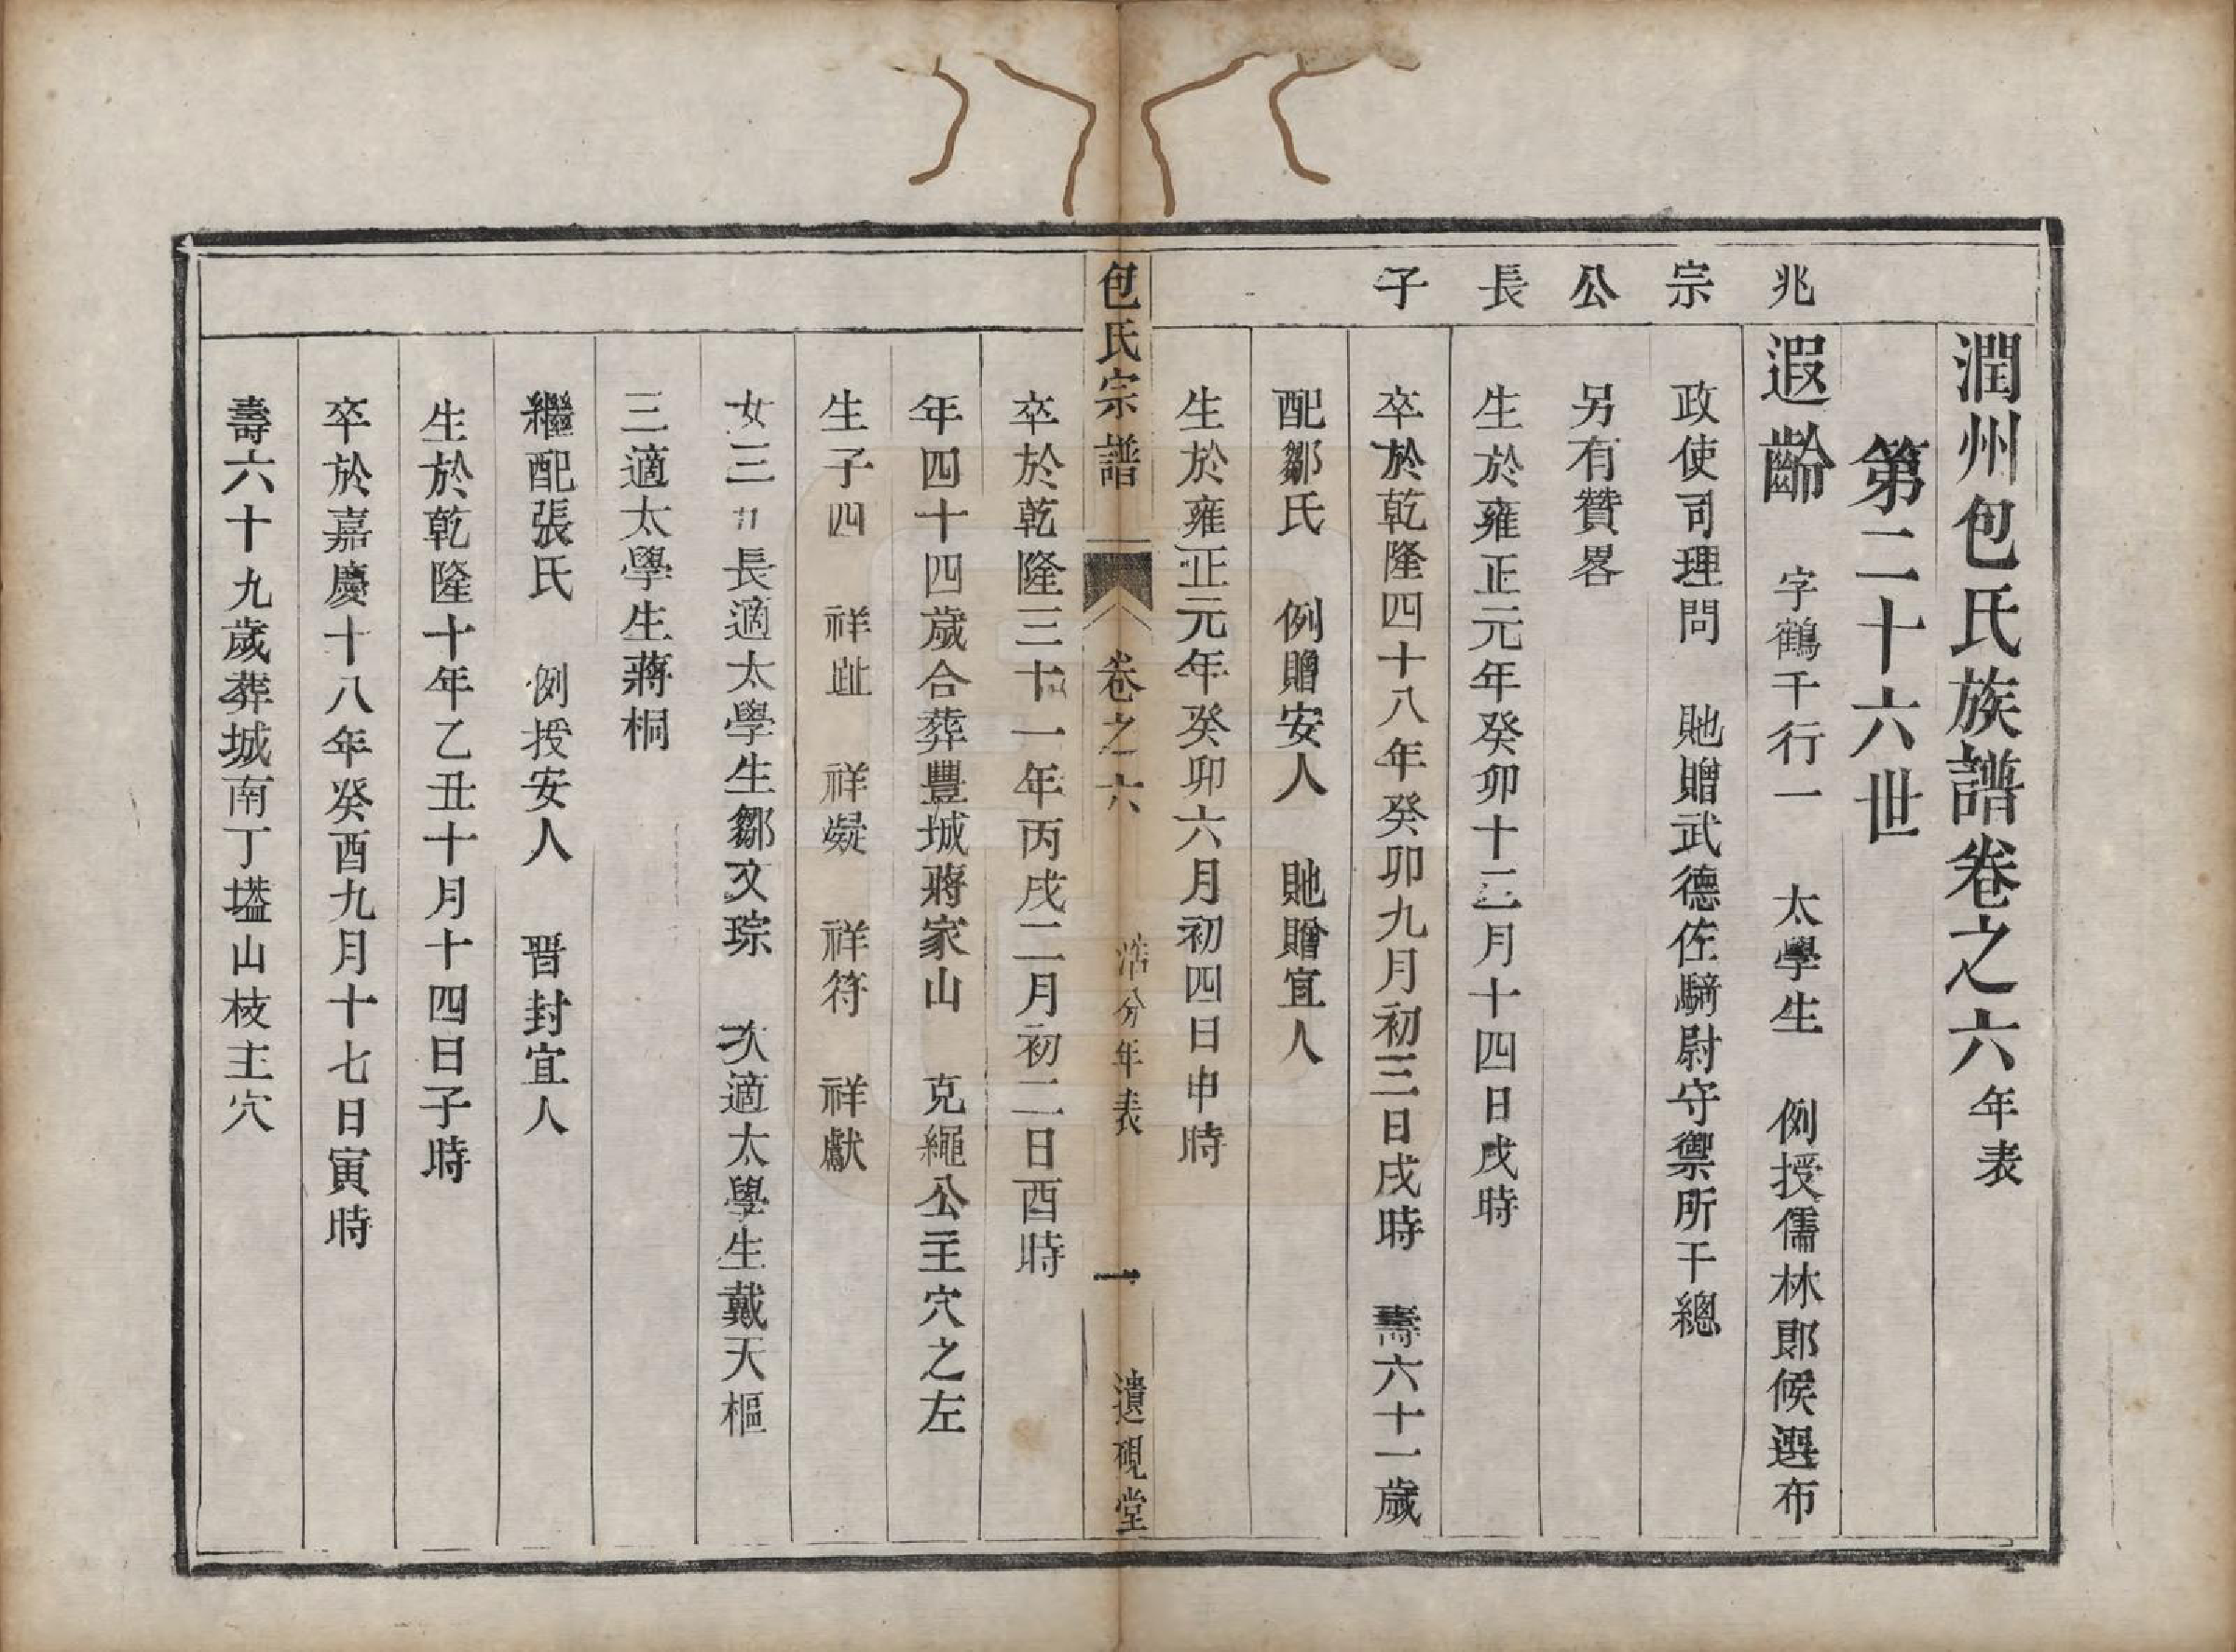 潤州包氏族譜卷之六年表
第二十六世
兆宗公長子
遐齡　字鶴千行一　太學生　例授儒林郎候選布
政使司理問　貤贈武德佐騎尉守禦所千總
另有贊畧
生於雍正元年癸卯十二月十四日戌時
卒於乾隆四十八年癸卯九月初三日戌時　壽六十一歲
配鄒氏　例贈安人　貤贈宜人
生於雍正元年癸卯六月初四日申時
包氏宗譜　卷之六　浩分年表　一　遺硯堂
卒於乾隆三十一年丙戌二月初二日酉時
年四十四歲合葬豐城蔣家山　克繩公主穴之左
生子四　祥趾　祥凝　祥符　祥獻
女三　長適太學生鄒文琮　次適太學生戴天樞
三適太學生蔣桐
繼配張氏　例授安人　晋封宜人
生於乾隆十年乙丑十月十四日子時
卒於嘉慶十八年癸酉九月十七日寅時
壽六十九歲葬城南丁壒山枝主穴